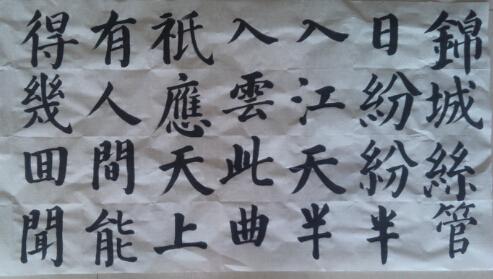 錦城絲管
日紛紛半
入江天半
入雲此曲
祇應天上
有人間能
得幾囬聞